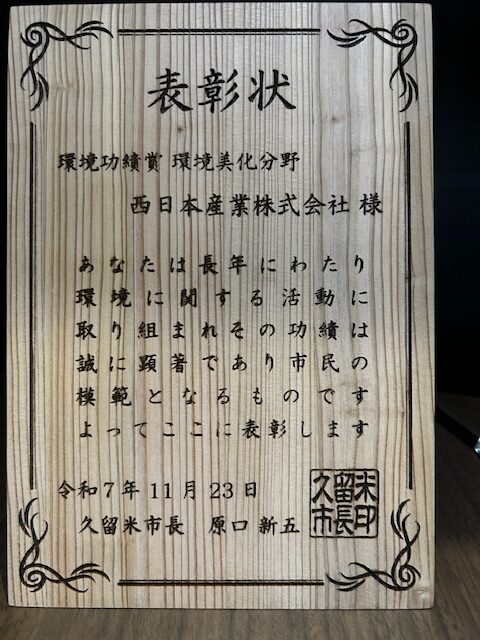 表彰状
環境功績賞 環境美化分野
西日本産業株式会社 様
あなたは長年にわたり
環境に関する活動に
取り組まれその功績は
誠に顕著であり市民の
模範となるものです
よってここに表彰します
令和7年11月23日
久留米市長 原口 新五
久留米市長印